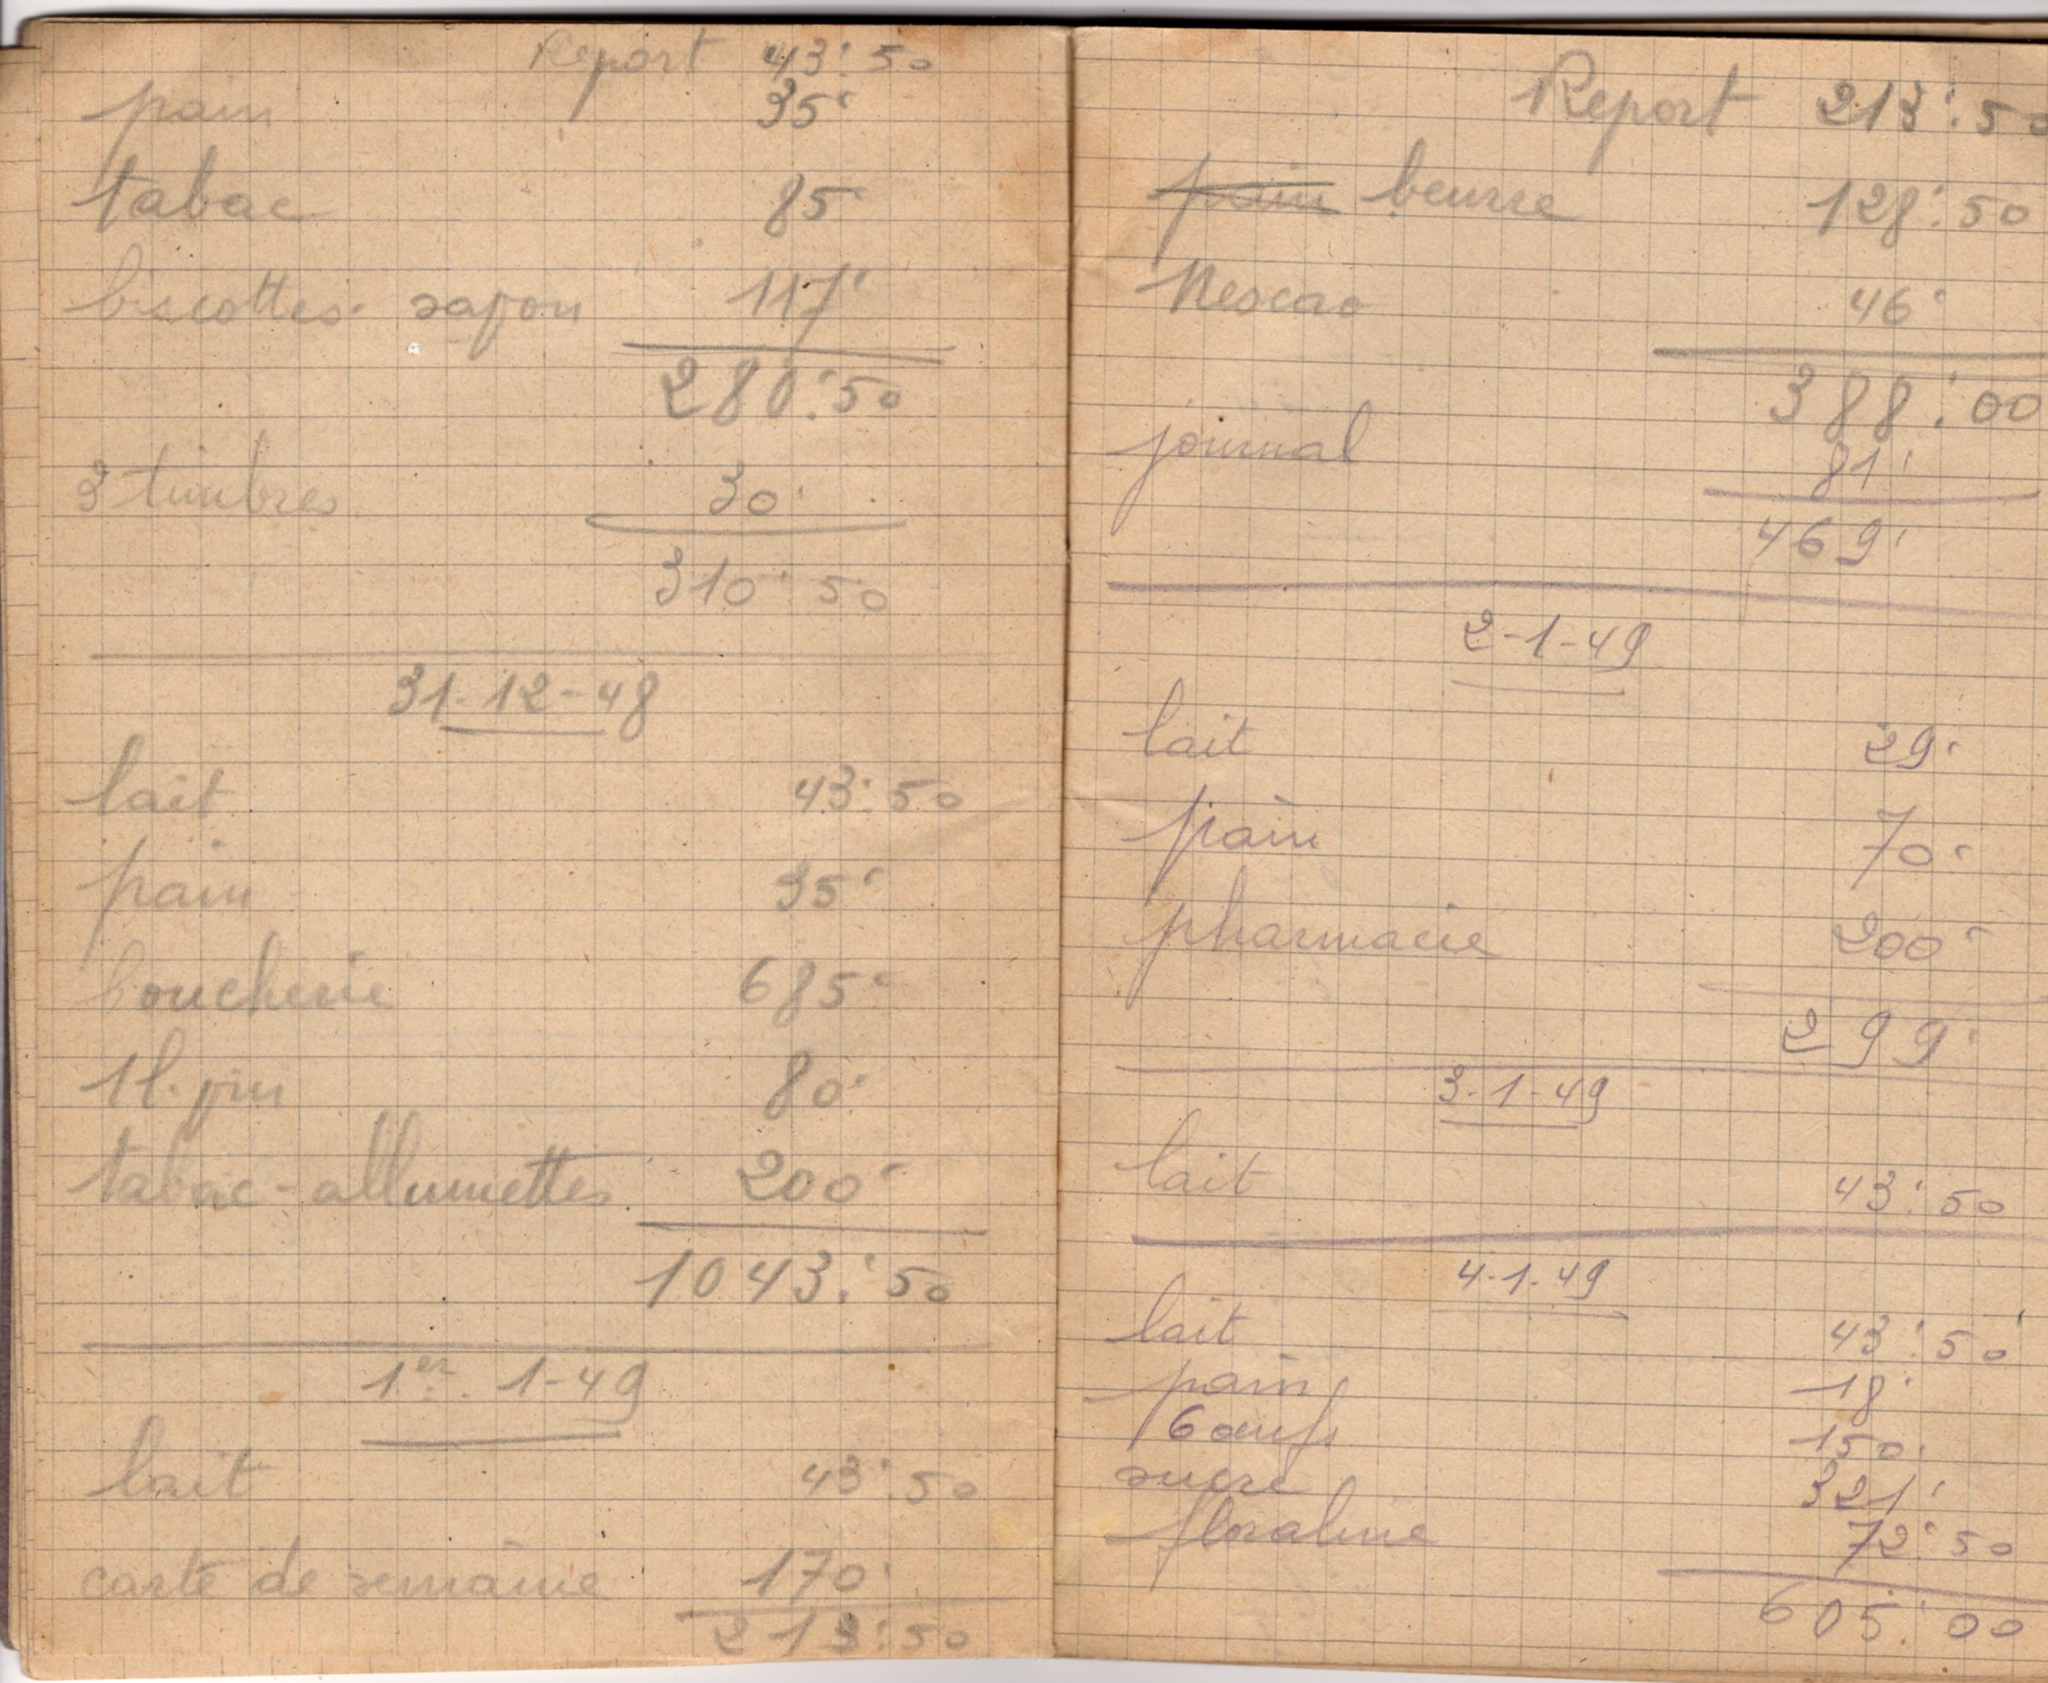 Report 43:50
pain 35
tabac 85
biscottes. savon 117
280:50
3 timbres 30
310:50
31-12-48
lait 43:50
pain 35
boucherie 685
1 l. vin 80
tabac-allumettes 200
1043:50
1er. 1-49
lait 43:50
carte de semaine 170
213:50
Report 213:50
pain beurre 128:50
Nescao 46
388:00
journal 81
469
2-1-49
lait 29
pain 70
pharmacie 200
299
3-1-49
lait 43:50
4-1-49
lait 43:50
pain 18
6 œufs 150
sucre 321
floraline 72:50
605:00